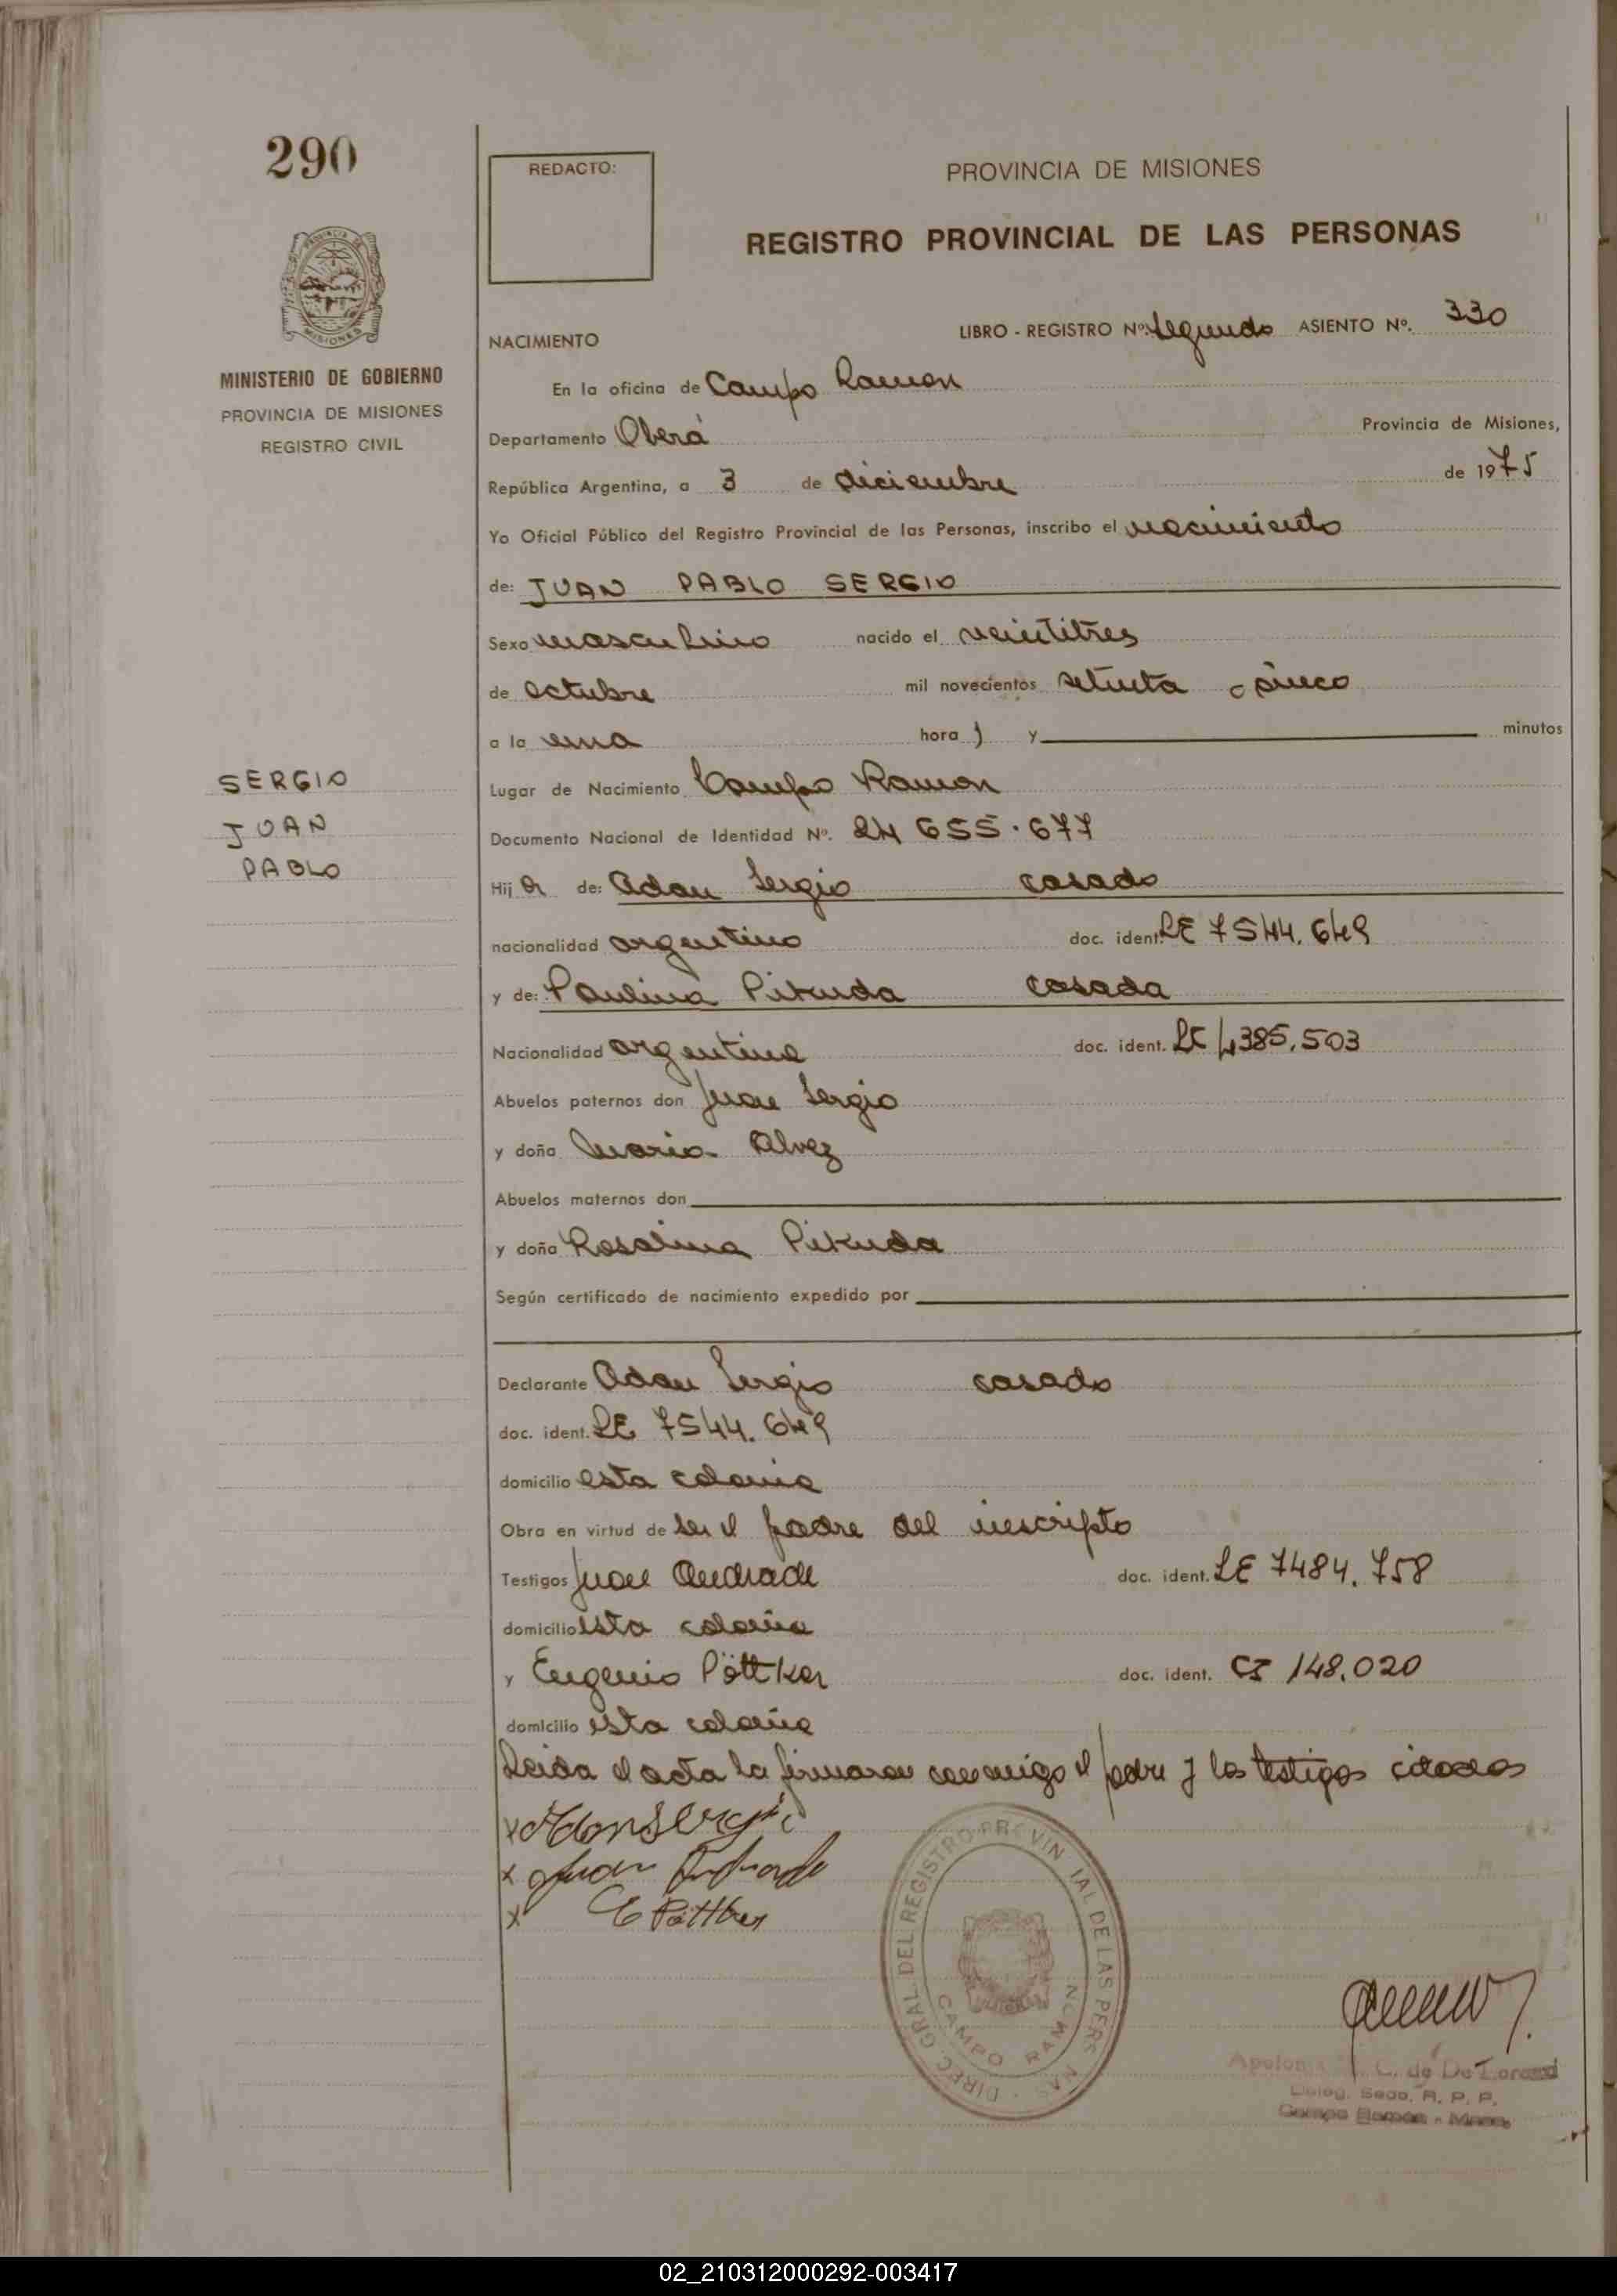 290
REDACTO:
PROVINCIA DE MISIONES
REGISTRO PROVINCIAL DE LAS PERSONAS
PROVINCIA DE
MISIONES
MINISTERIO DE GOBIERNO
PROVINCIA DE MISIONES
REGISTRO CIVIL
NACIMIENTO
LIBRO - REGISTRO Nº. Segundo ASIENTO Nº. 330
En la oficina de Campo Ramon
Departamento Oberá Provincia de Misiones,
República Argentina, a 3 de diciembre de 1975
Yo Oficial Público del Registro Provincial de las Personas, inscribo el nacimiento
de: JUAN PABLO SERGIO
Sexo masculino nacido el veintitres
de octubre mil novecientos setenta y cinco
a la una hora ) y minutos
SERGIO
JUAN
PABLO
Lugar de Nacimiento Campo Ramon
Documento Nacional de Identidad Nº. 24 655.677
Hij o de: Adan Sergio casado
nacionalidad argentino doc. ident. LE 7544.649
y de: Paulina Pikuda casada
Nacionalidad argentina doc. ident. LC 4385.503
Abuelos paternos don Juan Sergio
y doña Maria Alvez
Abuelos maternos don
y doña Rosalina Pikuda
Según certificado de nacimiento expedido por
Declarante Adan Sergio casado
doc. ident. LE 7544.649
domicilio esta colonia
Obra en virtud de ser el padre del inscripto
Testigos Juan Andrade doc. ident. LE 7484.758
domicilio esta colonia
y Eugenio Pöttker doc. ident. CI 148.020
domicilio esta colonia
Leida el acta la firmaron conmigo el padre y los testigos citados
x Adan Sergio
x Juan Andrade
x E Pöttker
DIREC. GRAL. DEL REGISTRO PROVINCIAL DE LAS PERSONAS
CAMPO RAMON
C. de De
Deleg. Secc. R. P. P.
Campo Ramón - Mnes.
02_210312000292-003417